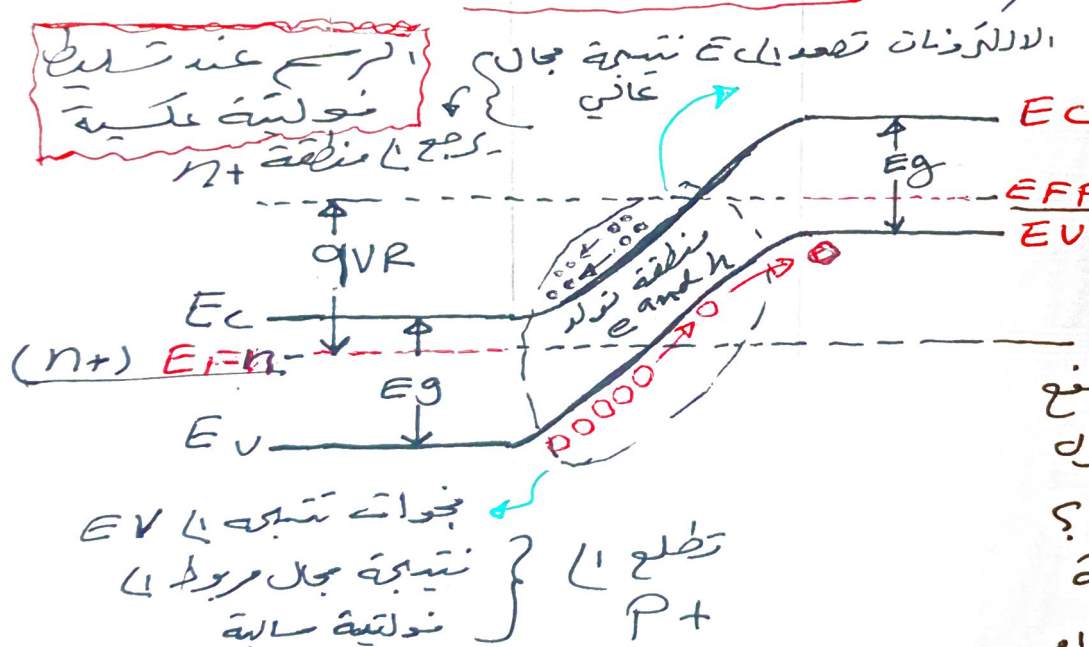 الرسم عند تسليط
فولتية عكسية
الالكترونات تصعد الى Ec نتيجة مجال
عالي
يرجع الى منطقة n+
EC
Eg
EFP
EV
qVR
منطقة تولد
e and h
Ec
(n+) E
Eg
Ev
فجوات تتجه الى EV
نتيجة مجال مربوط الى
فولتية سالبة
تطلع الى
P+